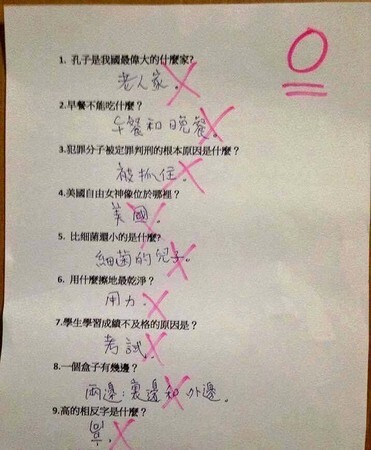 0
1. 孔子是我國最偉大的什麼家?
老人家。
2.早餐不能吃什麼？
午餐和晚餐。
3.犯罪分子被定罪判刑的根本原因是什麼？
被抓住。
4.美國自由女神像位於哪裡？
美國。
5. 比細菌還小的是什麼?
細菌的兒子。
6. 用什麼擦地最乾淨？
用力。
7.學生學習成績不及格的原因是？
考試.
8.一個盒子有幾邊？
兩邊:裏邊和外邊。
9.高的相反字是什麼？